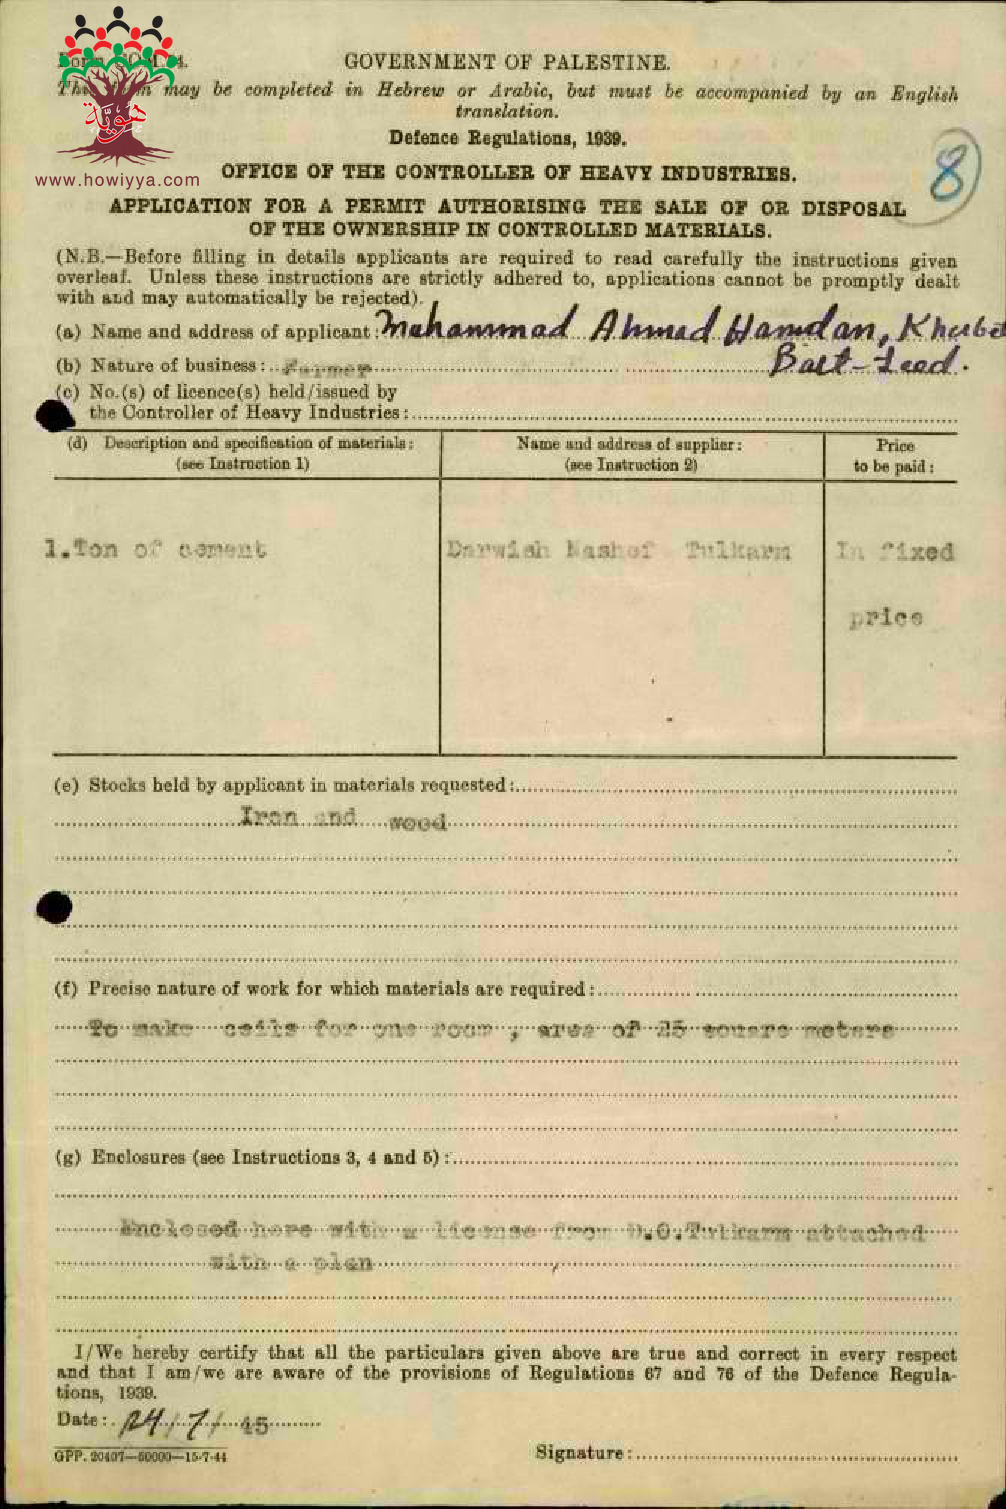 هويّة
www.howiyya.com
8
GOVERNMENT OF PALESTINE.
may be completed in Hebrew or Arabic, but must be accompanied by an English
translation.
Defence Regulations, 1939.
OFFICE OF THE CONTROLLER OF HEAVY INDUSTRIES.
APPLICATION FOR A PERMIT AUTHORISING THE SALE OF OR DISPOSAL
OF THE OWNERSHIP IN CONTROLLED MATERIALS.
(N.B.—Before filling in details applicants are required to read carefully the instructions given
overleaf. Unless these instructions are strictly adhered to, applications cannot be promptly dealt
with and may automatically be rejected).
(a) Name and address of applicant: Muhammad Ahmad Hamdan, Kherbet
Bait-Leed.
(b) Nature of business: Farmer
(c) No.(s) of licence(s) held/issued by
the Controller of Heavy Industries:
(d) Description and specification of materials:
(see Instruction 1)
Name and address of supplier:
(see Instruction 2)
Price
to be paid:
1.Ton of cement
Darwish Nashef Tulkarm
In fixed
price
(e) Stocks held by applicant in materials requested:
Iron and wood
(f) Precise nature of work for which materials are required:
To make ceils for one room , area of 25 square meters
(g) Enclosures (see Instructions 3, 4 and 5):
Enclosed here with a license from D.O.Tulkarm attached
with a plan
I/We hereby certify that all the particulars given above are true and correct in every respect
and that I am/we are aware of the provisions of Regulations 67 and 76 of the Defence Regula-
tions, 1939.
Date: 24/7/45
GPP. 20407—50000—15-7-44
Signature: